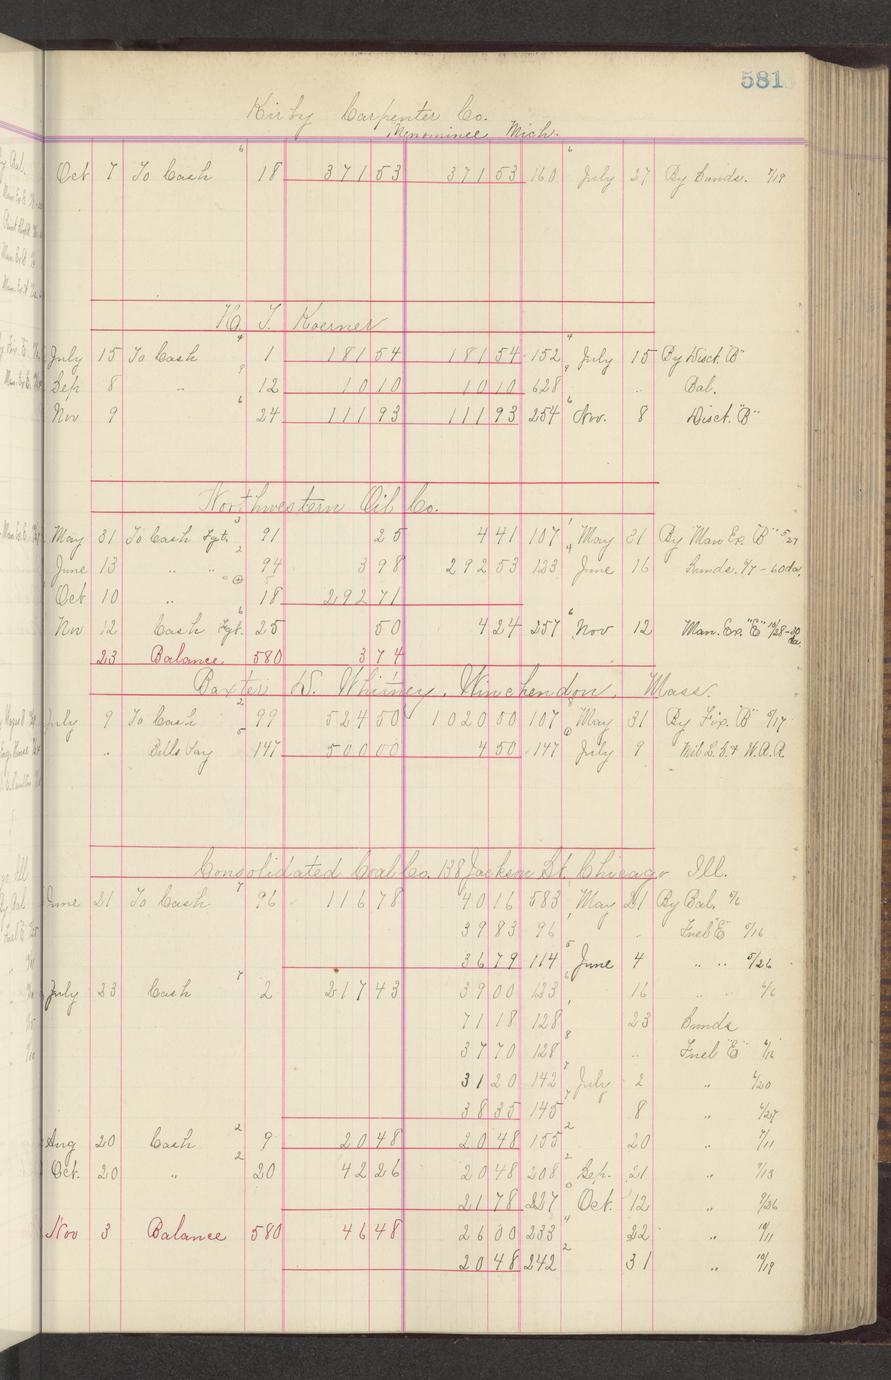 581
Kirby Carpenter Co.
Menominee Mich.
Oct 7 To Cash 6 18 371 53 371 53 160 6 July 27 By Sunds. 7/19
T. Koerner
July 15 To Cash 4 1 181 54 181 54 152 4 July 15 By Disct. "B"
Sep 8 " 9 12 10 10 10 10 628 9 " Bal.
Nov 9 6 24 111 93 111 93 254 6 Nov. 8 Disct. "B"
Northwestern Oil Co.
May 31 To Cash Fgt. 3 91 25 4 41 107 1 May 31 By Man Ex "B" 5/27
June 13 " " 2 94 3 98 292 53 123 4 June 16 Sunds. 6/7 - 60 da.
Oct 10 " 18 292 71
Nov 12 Cash Fgt. 6 25 50 4 24 257 6 Nov 12 Man. Ex. "E" 10/28 - 30 da.
23 Balance 580 3 74
Baxter D. Whitney, Winchendon, Mass.
July 9 To Cash 2 99 524 50 1020 00 107 8 May 31 By Fix. "B" 5/17
" Bills Pay 5 147 500 00 4 50 147 July 9 Mil L.S. & W.R.R
Consolidated Coal Co. 138 Jackson St. Chicago Ill.
June 21 To Cash 7 96 116 78 40 16 583 May 21 By Bal.
39 83 96 1 " Fuel "E" 5/16
36 79 114 5 June 4 " " 5/26
July 23 Cash 7 2 217 43 39 00 123 6 16 " " 6/6
71 18 128 1 23 Sunds
37 70 128 8 " Fuel "E" 6/16
31 20 142 7 July 2 " 6/20
38 35 145 7 8 " 6/27
Aug 20 Cash 2 9 20 48 20 48 155 2 20 " 7/11
Oct. 20 " 2 20 42 26 20 48 208 2 Sep. 21 " 9/13
21 78 227 0 Oct. 12 " 9/26
Nov 3 Balance 580 46 48 26 00 233 4 22 " 10/11
20 48 242 2 31 " 10/19